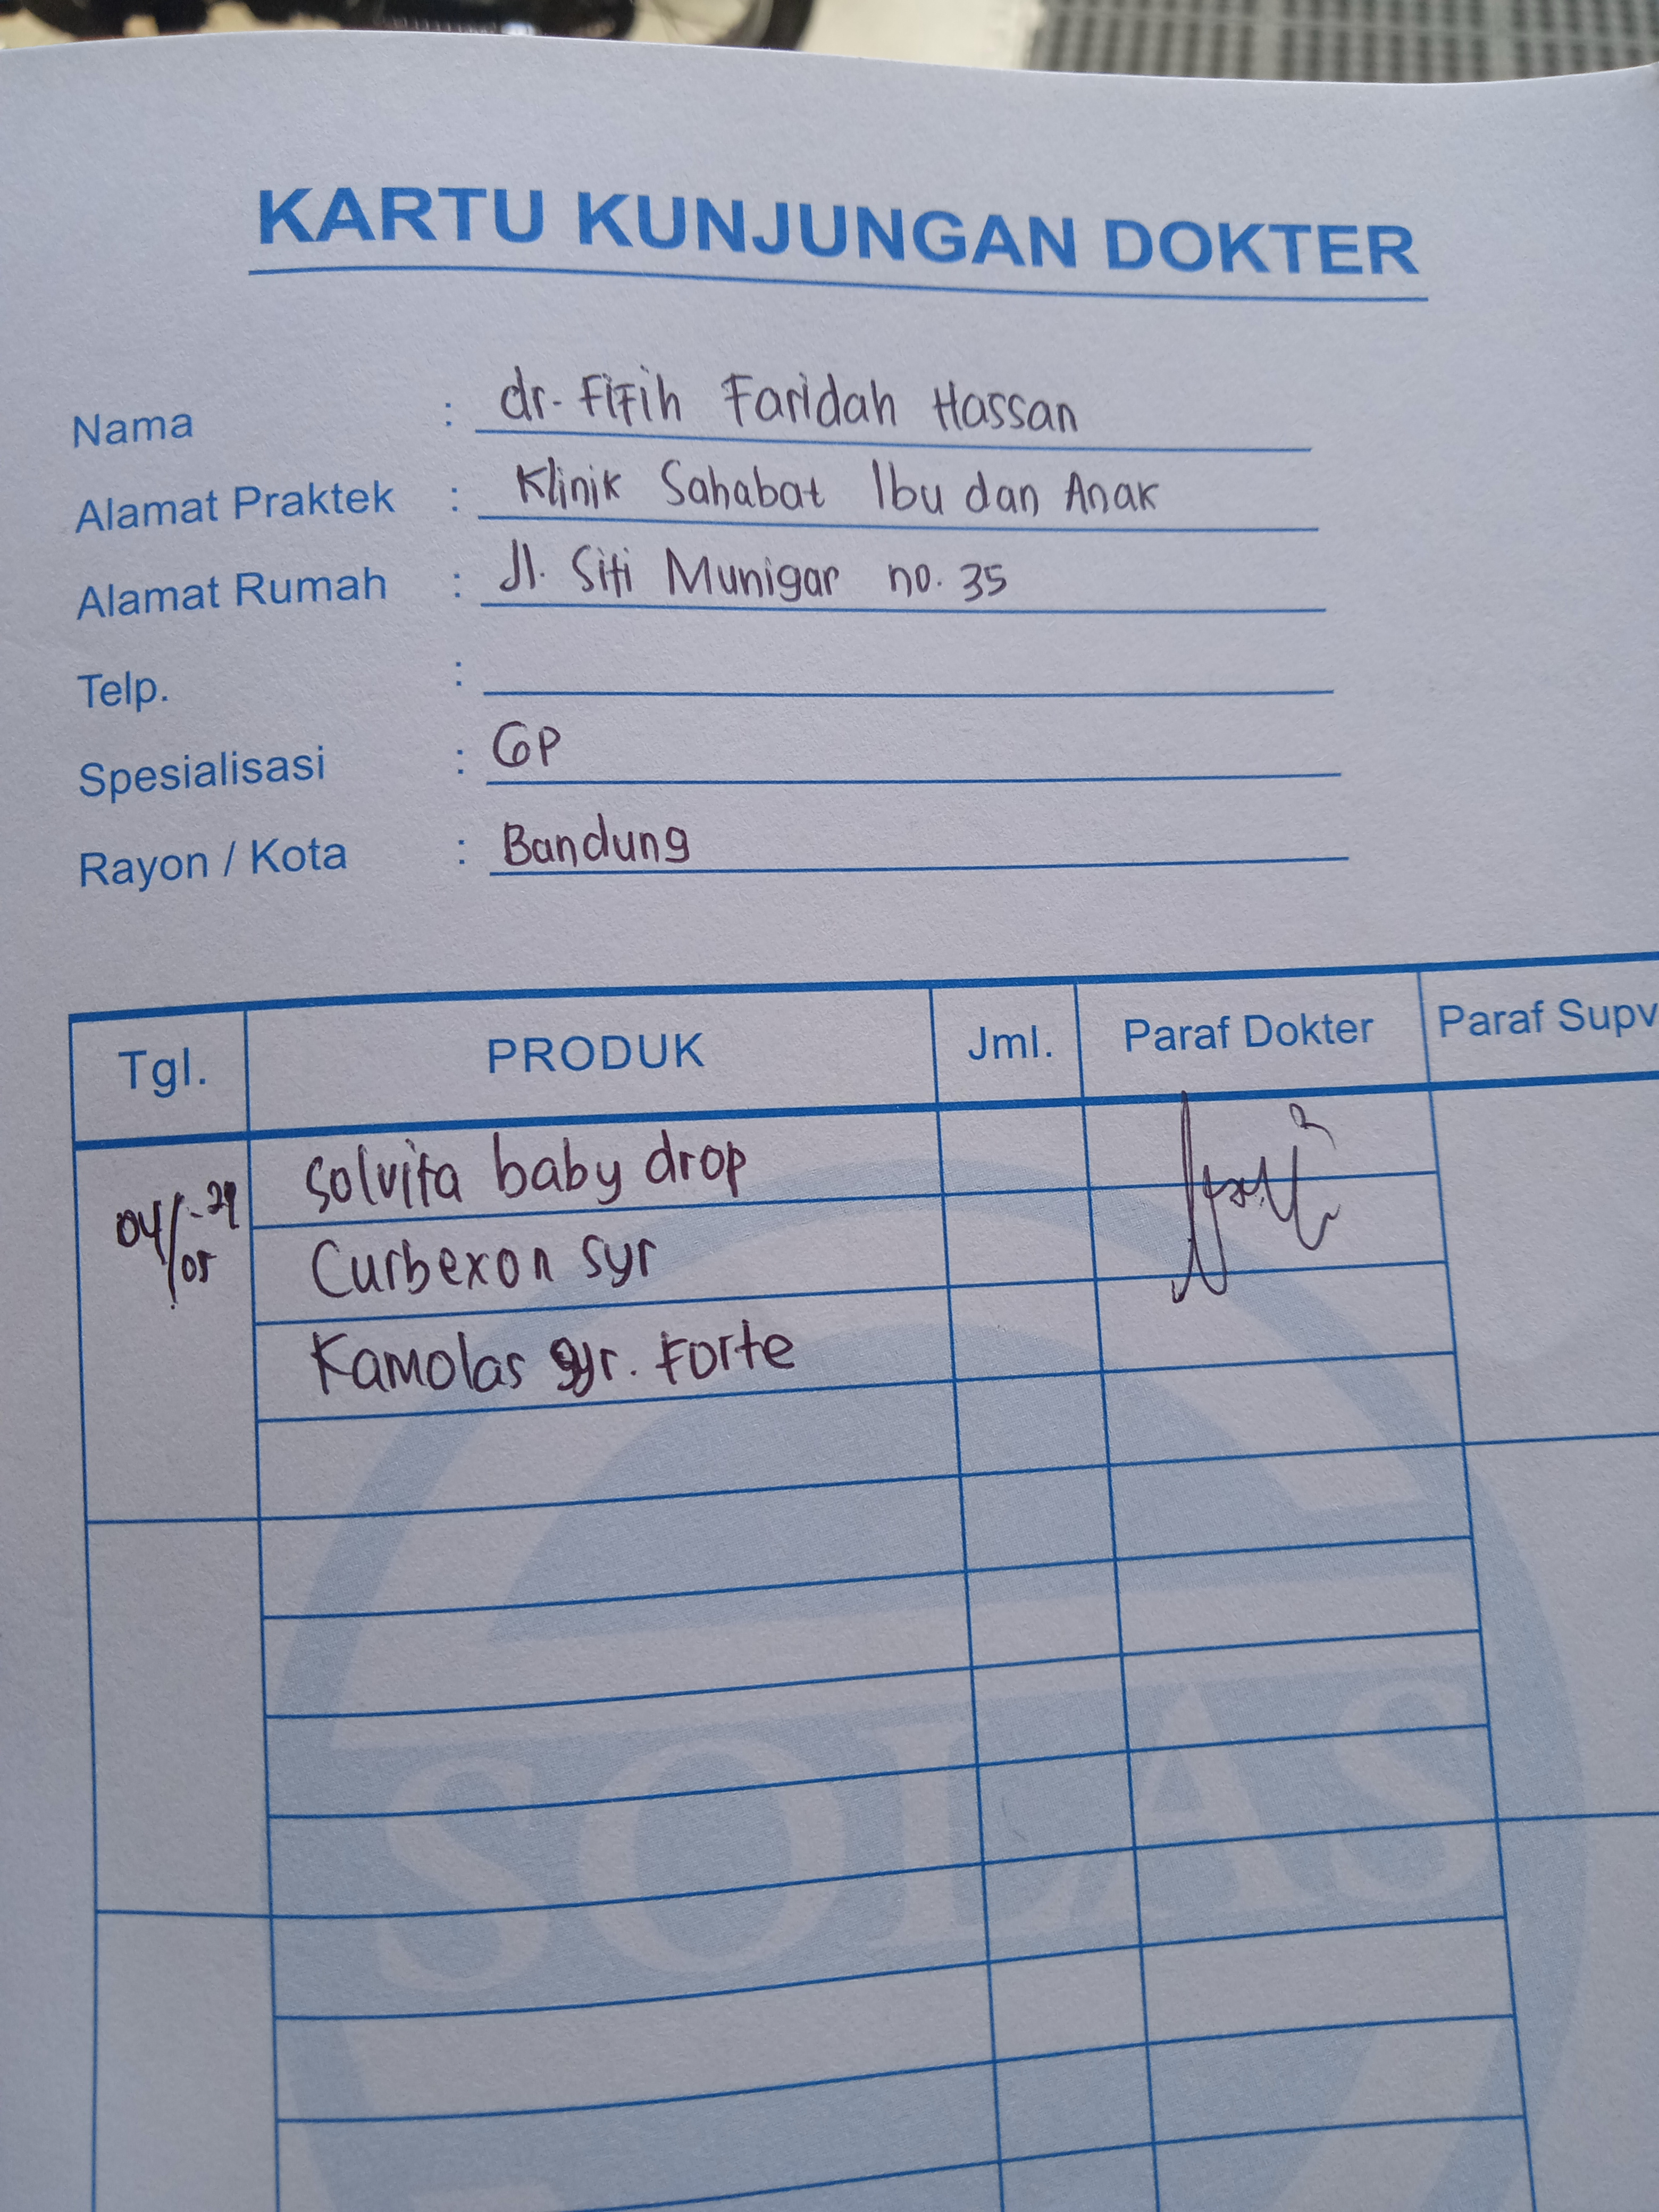 KARTU KUNJUNGAN DOKTER
Nama : dr. Fifih Faridah Hassan
Alamat Praktek : Klinik Sahabat Ibu dan Anak
Alamat Rumah : Jl. Siti Munigar no. 35
Telp. :
Spesialisasi : GP
Rayon / Kota : Bandung
Tgl. PRODUK Jml. Paraf Dokter Paraf Supv
Solvita baby drop
04/05
Curbexon syr
Kamolas syr. Forte
SOLAS